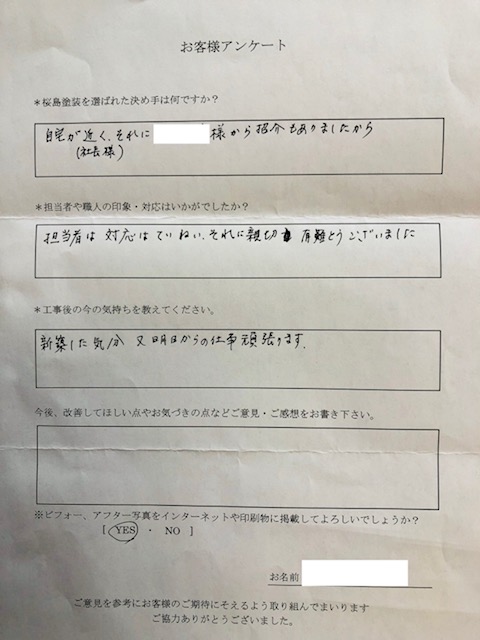 お客様アンケート
＊桜島塗装を選ばれた決め手は何ですか？
自宅が近く、それに 様から紹介もありましたから
(社長様)
＊担当者や職人の印象・対応はいかがでしたか？
担当者は対応はていねい、それに親切 有難とうございました
＊工事後の今の気持ちを教えてください。
新築した気分 又明日からの仕事頑張ります.
今後、改善してほしい点やお気づきの点などご意見・ご感想をお書き下さい。
※ビフォー、アフター写真をインターネットや印刷物に掲載してよろしいでしょうか？
[ YES ・ NO ]
お名前
ご意見を参考にお客様のご期待にそえるよう取り組んでまいります
ご協力ありがとうございました。